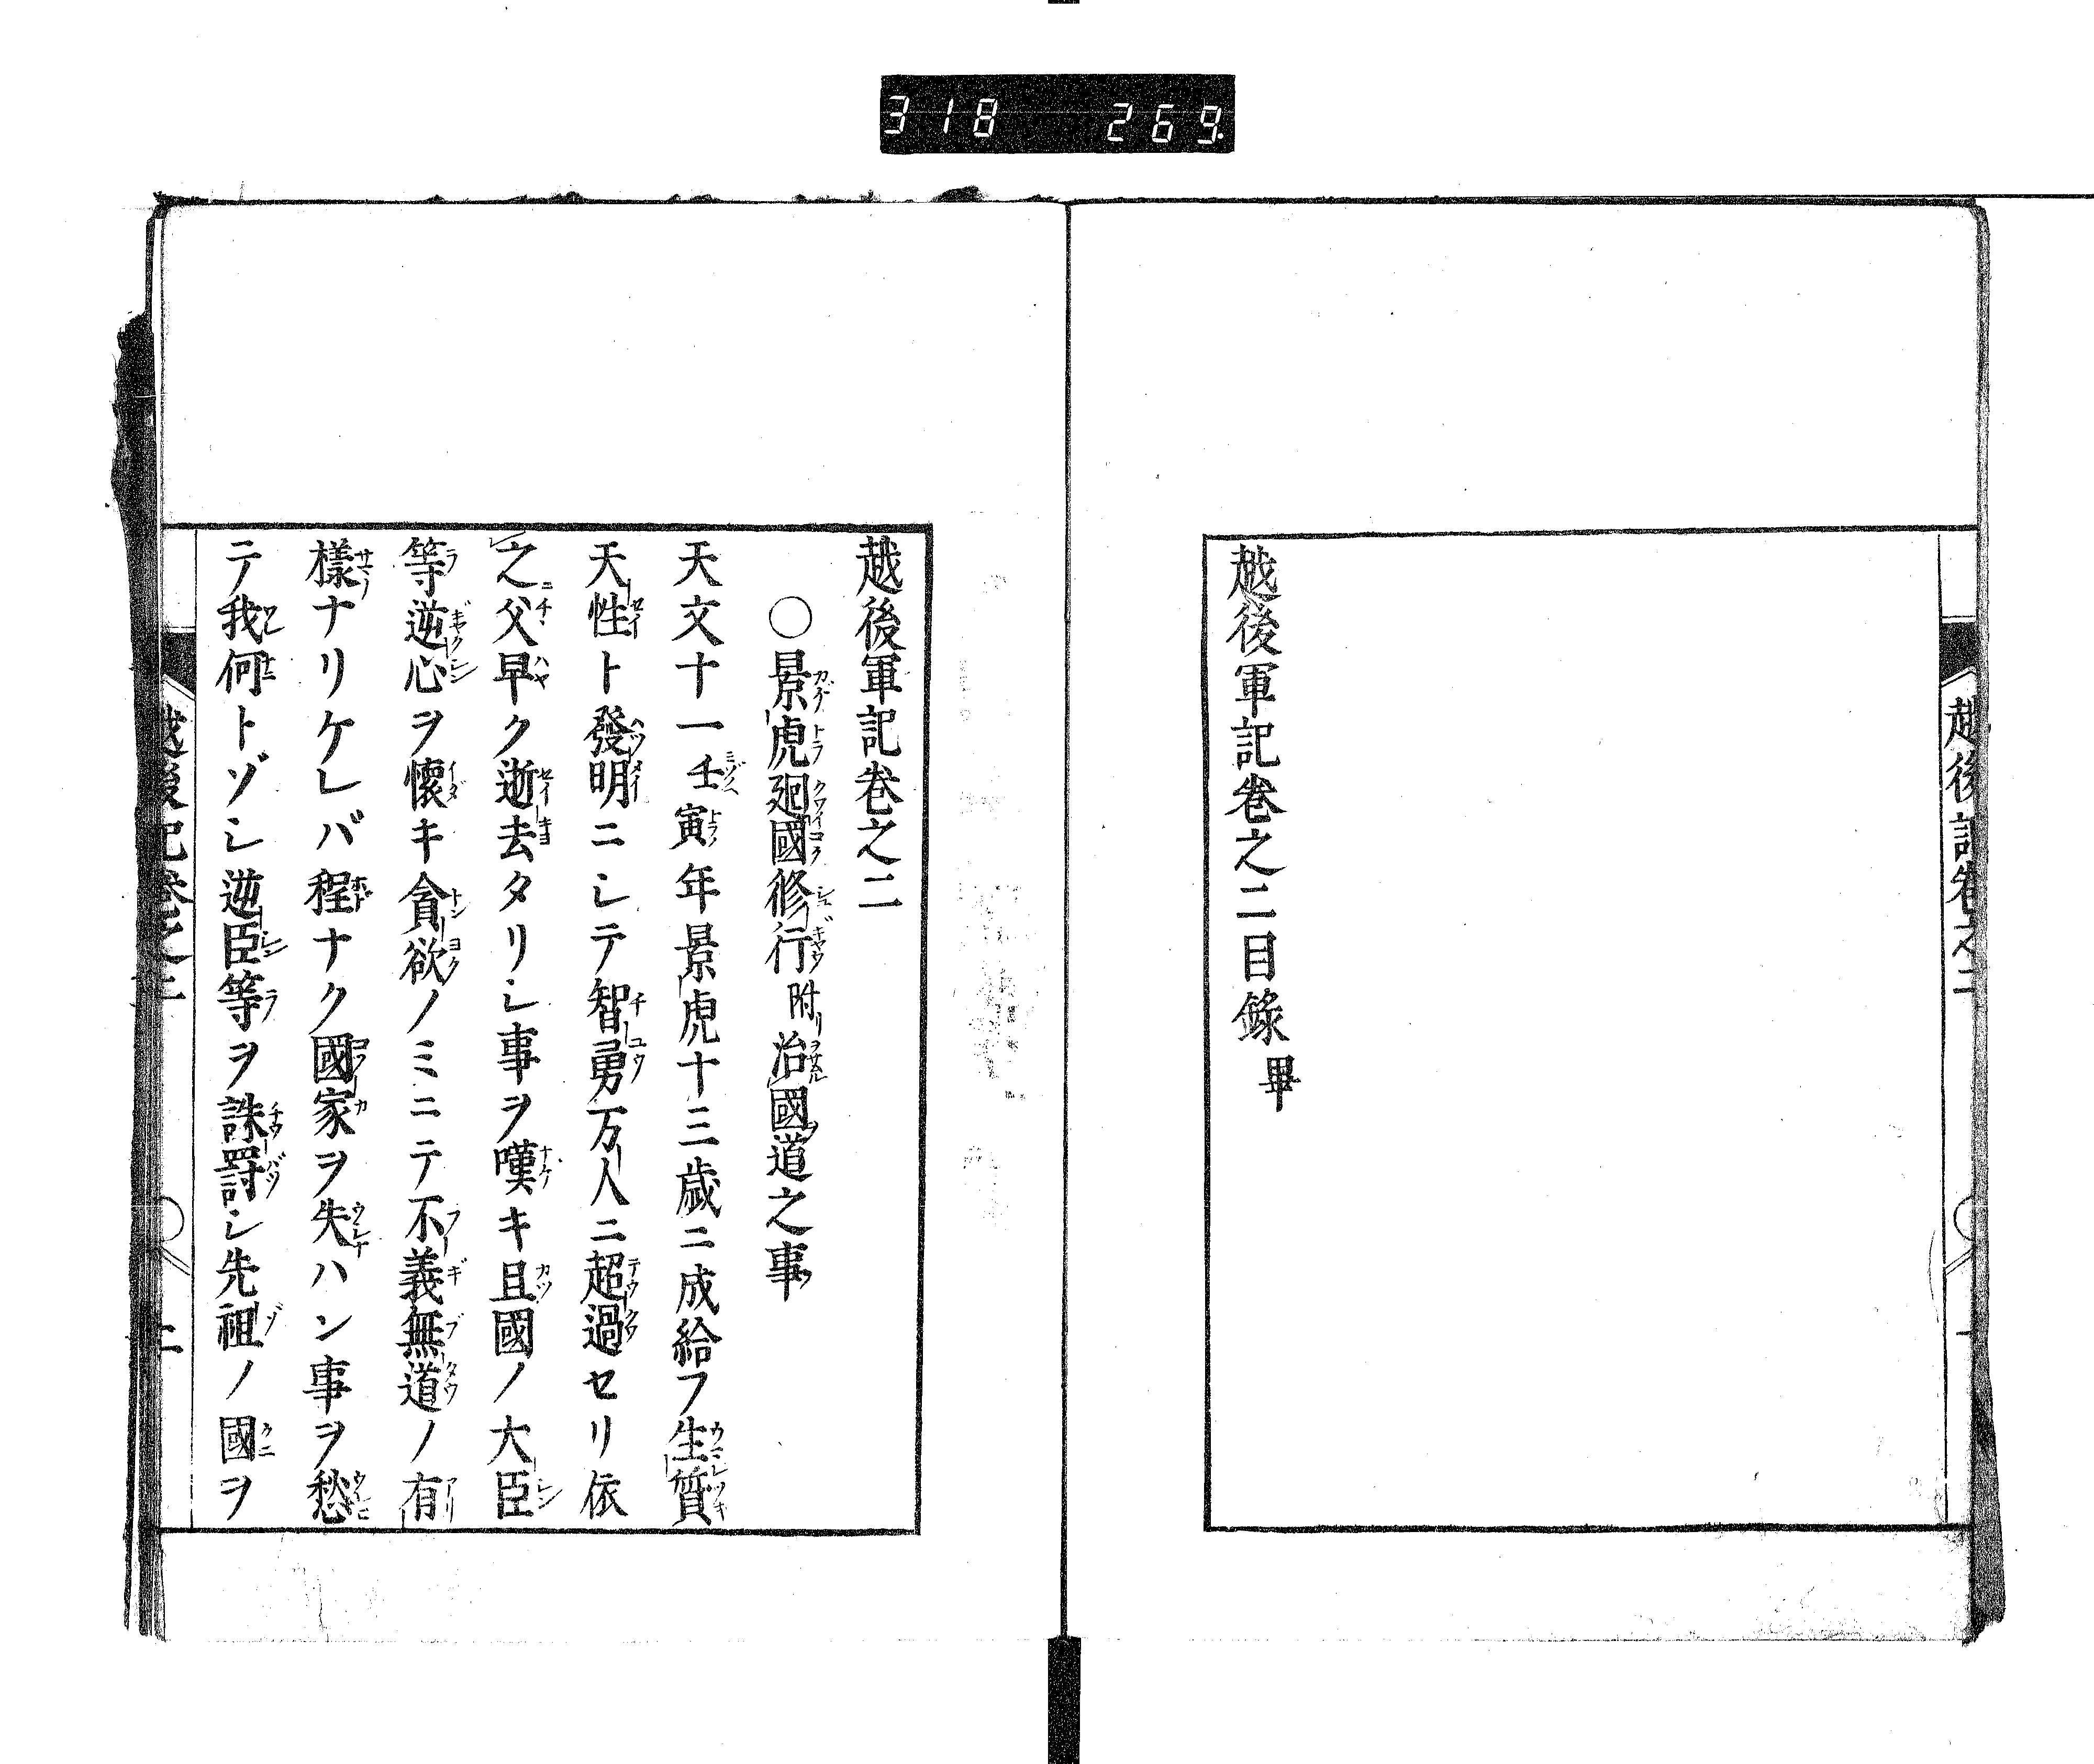 318 269
越後軍記巻之二目錄畢
越後軍記巻之二
○景虎廻國修行附リ治國道之事
天文十一壬寅年景虎十三歳ニ成給フ生質
天性ト發明ニシテ智勇万人ニ超過セリ依
之父早ク逝去タリシ事ヲ嘆キ且國ノ大臣
等逆心ヲ懷キ貪欲ノミニテ不義無道ノ有
樣ナリケレバ程ナク國家ヲ失ハン事ヲ愁
テ我何トゾシ逆臣等ヲ誅罸シ先祖ノ國ヲ